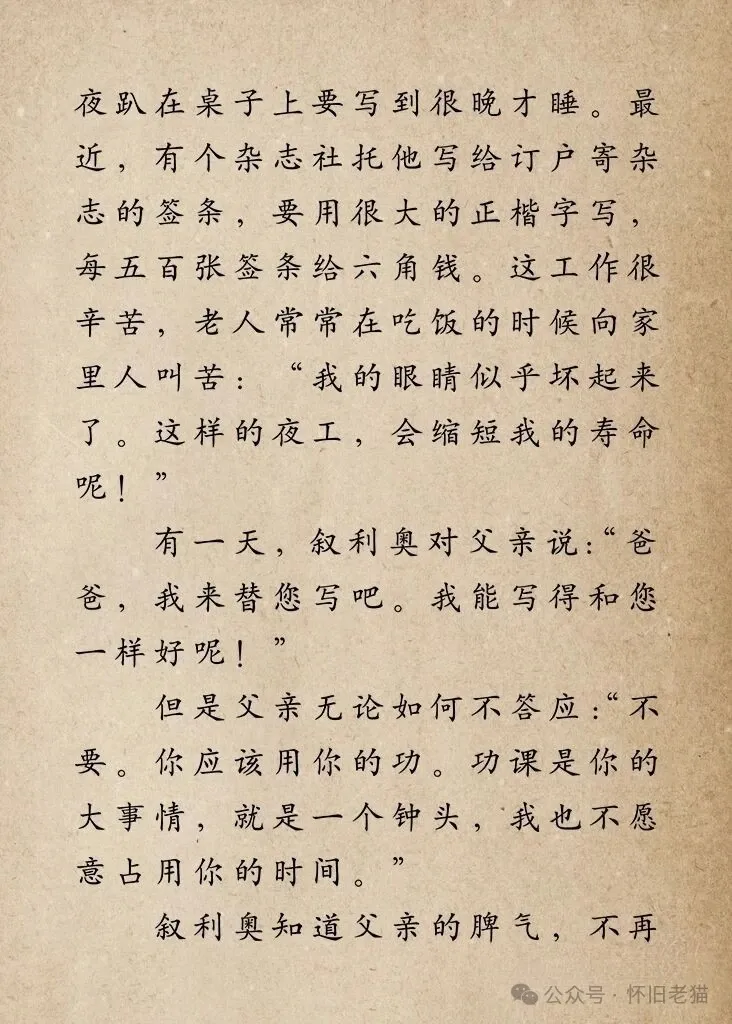 夜趴在桌子上要写到很晚才睡。最
近，有个杂志社托他写给订户寄杂
志的签条，要用很大的正楷字写，
每五百张签条给六角钱。这工作很
辛苦，老人常常在吃饭的时候向家
里人叫苦：“我的眼睛似乎坏起来
了。这样的夜工，会缩短我的寿命
呢！”
有一天，叙利奥对父亲说：“爸
爸，我来替您写吧。我能写得和您
一样好呢！”
但是父亲无论如何不答应：“不
要。你应该用你的功。功课是你的
大事情，就是一个钟头，我也不愿
意占用你的时间。”
叙利奥知道父亲的脾气，不再
公众号·怀旧老猫